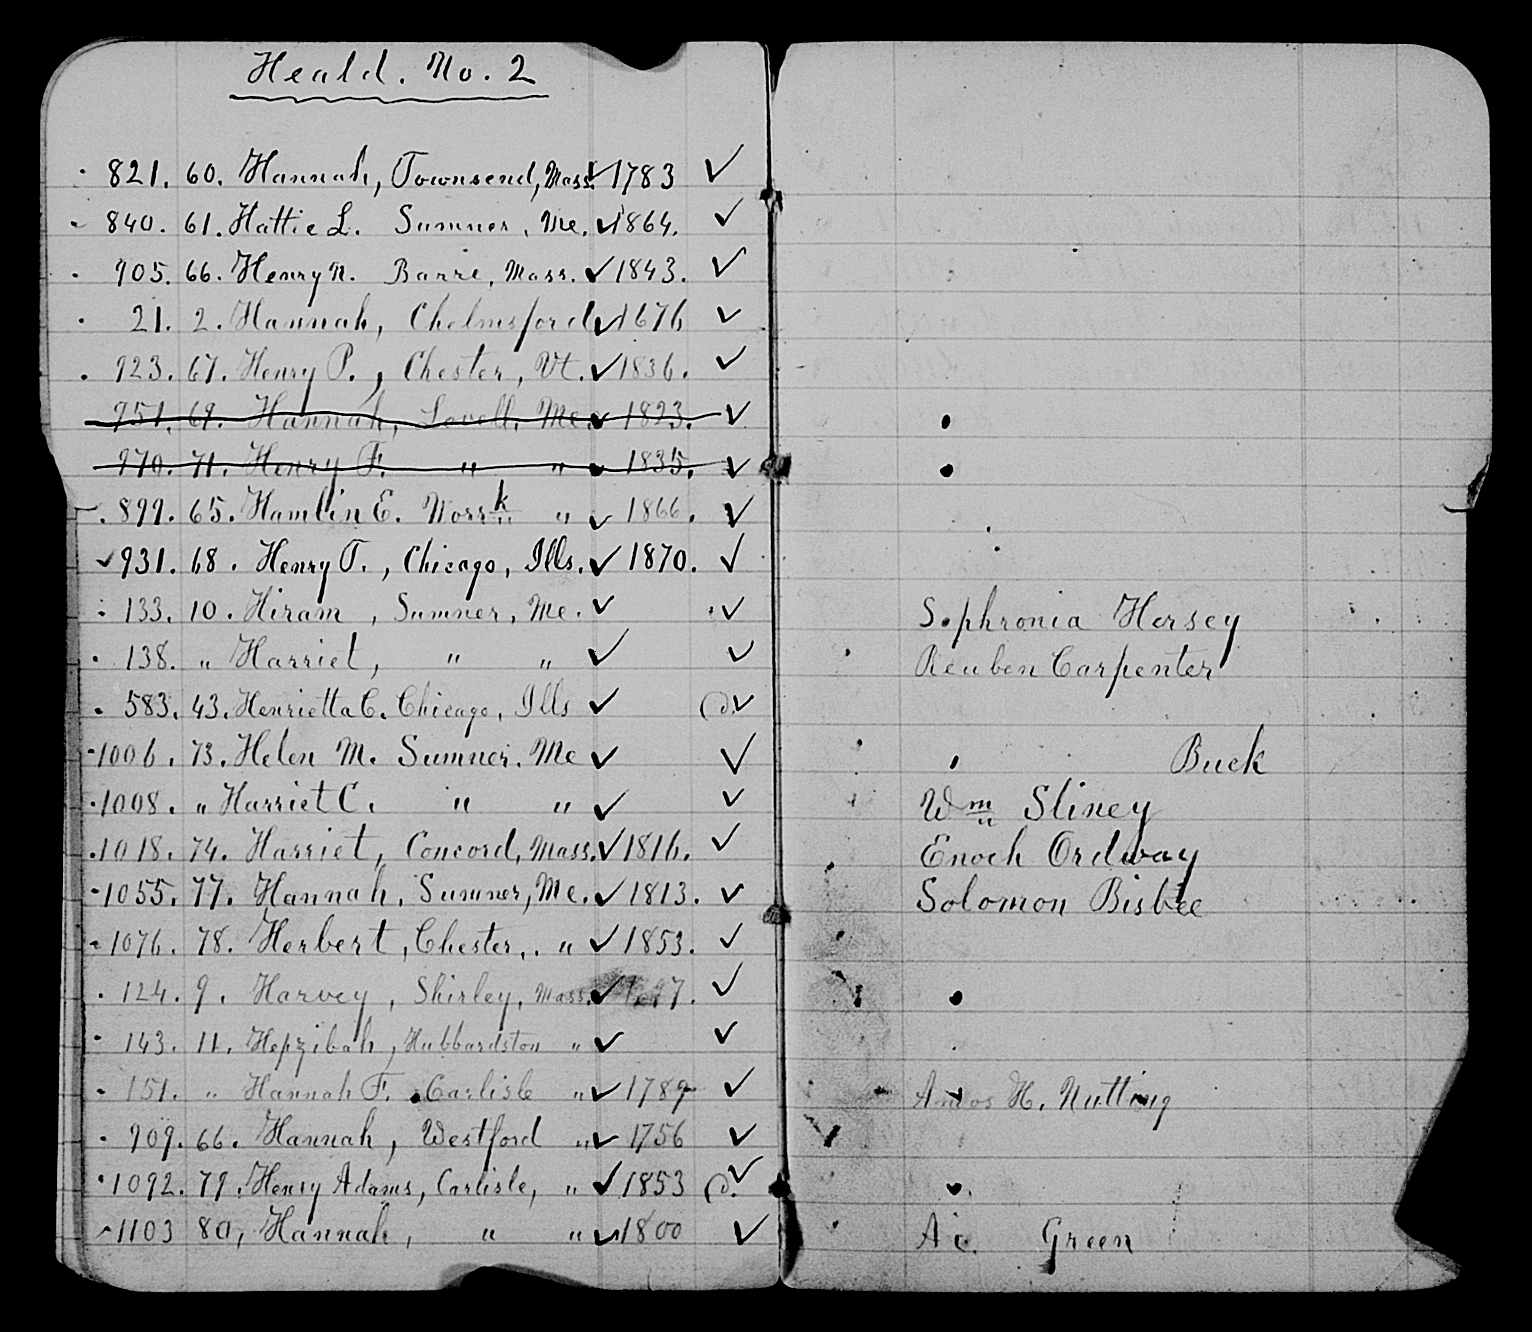 Heald. No. 2
821. 60. Hannah, Townsend, Mass. ✓ 1783 ✓
840. 61. Hattie L. Sumner, Me. ✓ 1864. ✓
905. 66. Henry N. Barre, Mass. ✓ 1843. ✓
21. 2. Hannah, Chelmsford ✓ 1676 ✓
923. 67. Henry P., Chester, Vt. ✓ 1836. ✓
951. 69. Hannah, Lovell, Me. ✓ 1823. ✓
970. 71. Henry F. " " ✓ 1835. ✓
899. 65. Hamlin E. " ✓ 1866. ✓
✓ 931. 68. Henry T., Chicago, Ills. ✓ 1870. ✓
133. 10. Hiram, Sumner, Me. ✓ ✓ Sophronia Hersey
138. " Harriet, " " ✓ ✓ Reuben Carpenter
583. 43. Henrietta C. Chicago, Ills ✓ d. ✓
1006. 73. Helen M. Sumner. Me ✓ ✓ Buck
1008. " Harriet C. " " ✓ ✓ Wm Stiney
1018. 74. Harriet, Concord, Mass. ✓ 1816. ✓ Enoch Ordway
1055. 77. Hannah, Sumner, Me. ✓ 1813. ✓ Solomon Bisbee
1076. 78. Herbert, Chester, " ✓ 1853. ✓
124. 9. Harvey, Shirley, Mass. ✓ ✓
143. 11. Hepzibah, Hubbardston " ✓ ✓
151. " Hannah F. Carlisle " ✓ 1789 ✓ Amos H. Nutting
909. 66. Hannah, Westford " ✓ 1756 ✓
1092. 79. Henry Adams, Carlisle, " ✓ 1853 d. ✓
1103 80, Hannah, " " ✓ 1800 ✓ Green